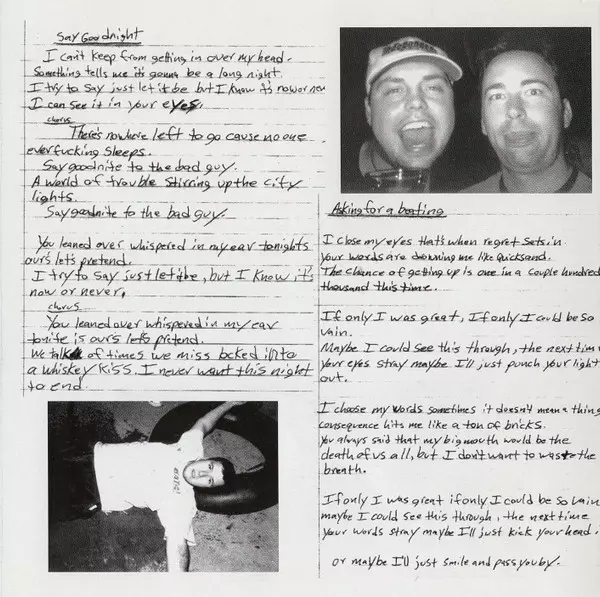 Say Goodnight
I can't keep from getting in over my head.
Something tells me it's gonna be a long night.
I try to say just let it be but I know it's now or nev
I can see it in your eyes.
chorus
There's nowhere left to go cause no one
ever fucking sleeps.
Say goodnite to the bad guy.
A world of trouble stirring up the city
lights.
Say goodnite to the bad guy.
You leaned over whispered in my ear tonights
ours let's pretend.
I try to say just let it be, but I know it's
now or never.
chorus
You leaned over whispered in my ear
tonite is ours let's pretend.
We talk of times we miss locked into
a whiskey kiss. I never want this night
to end.
Asking for a beating
I close my eyes that's when regret sets in
Your words are drowning me like quicksand.
The chance of getting up is one in a couple hundred
thousand this time.
If only I was great, If only I could be so
vain.
Maybe I could see this through, the next time
your eyes stray maybe I'll just punch your light
out.
I choose my words sometimes it doesn't mean a thing
consequence hits me like a ton of bricks.
You always said that my big mouth would be the
death of us all, but I don't want to waste the
breath.
If only I was great if only I could be so vain
maybe I could see this through, the next time
your words stray maybe I'll just kick your head.
or maybe I'll just smile and pass you by.